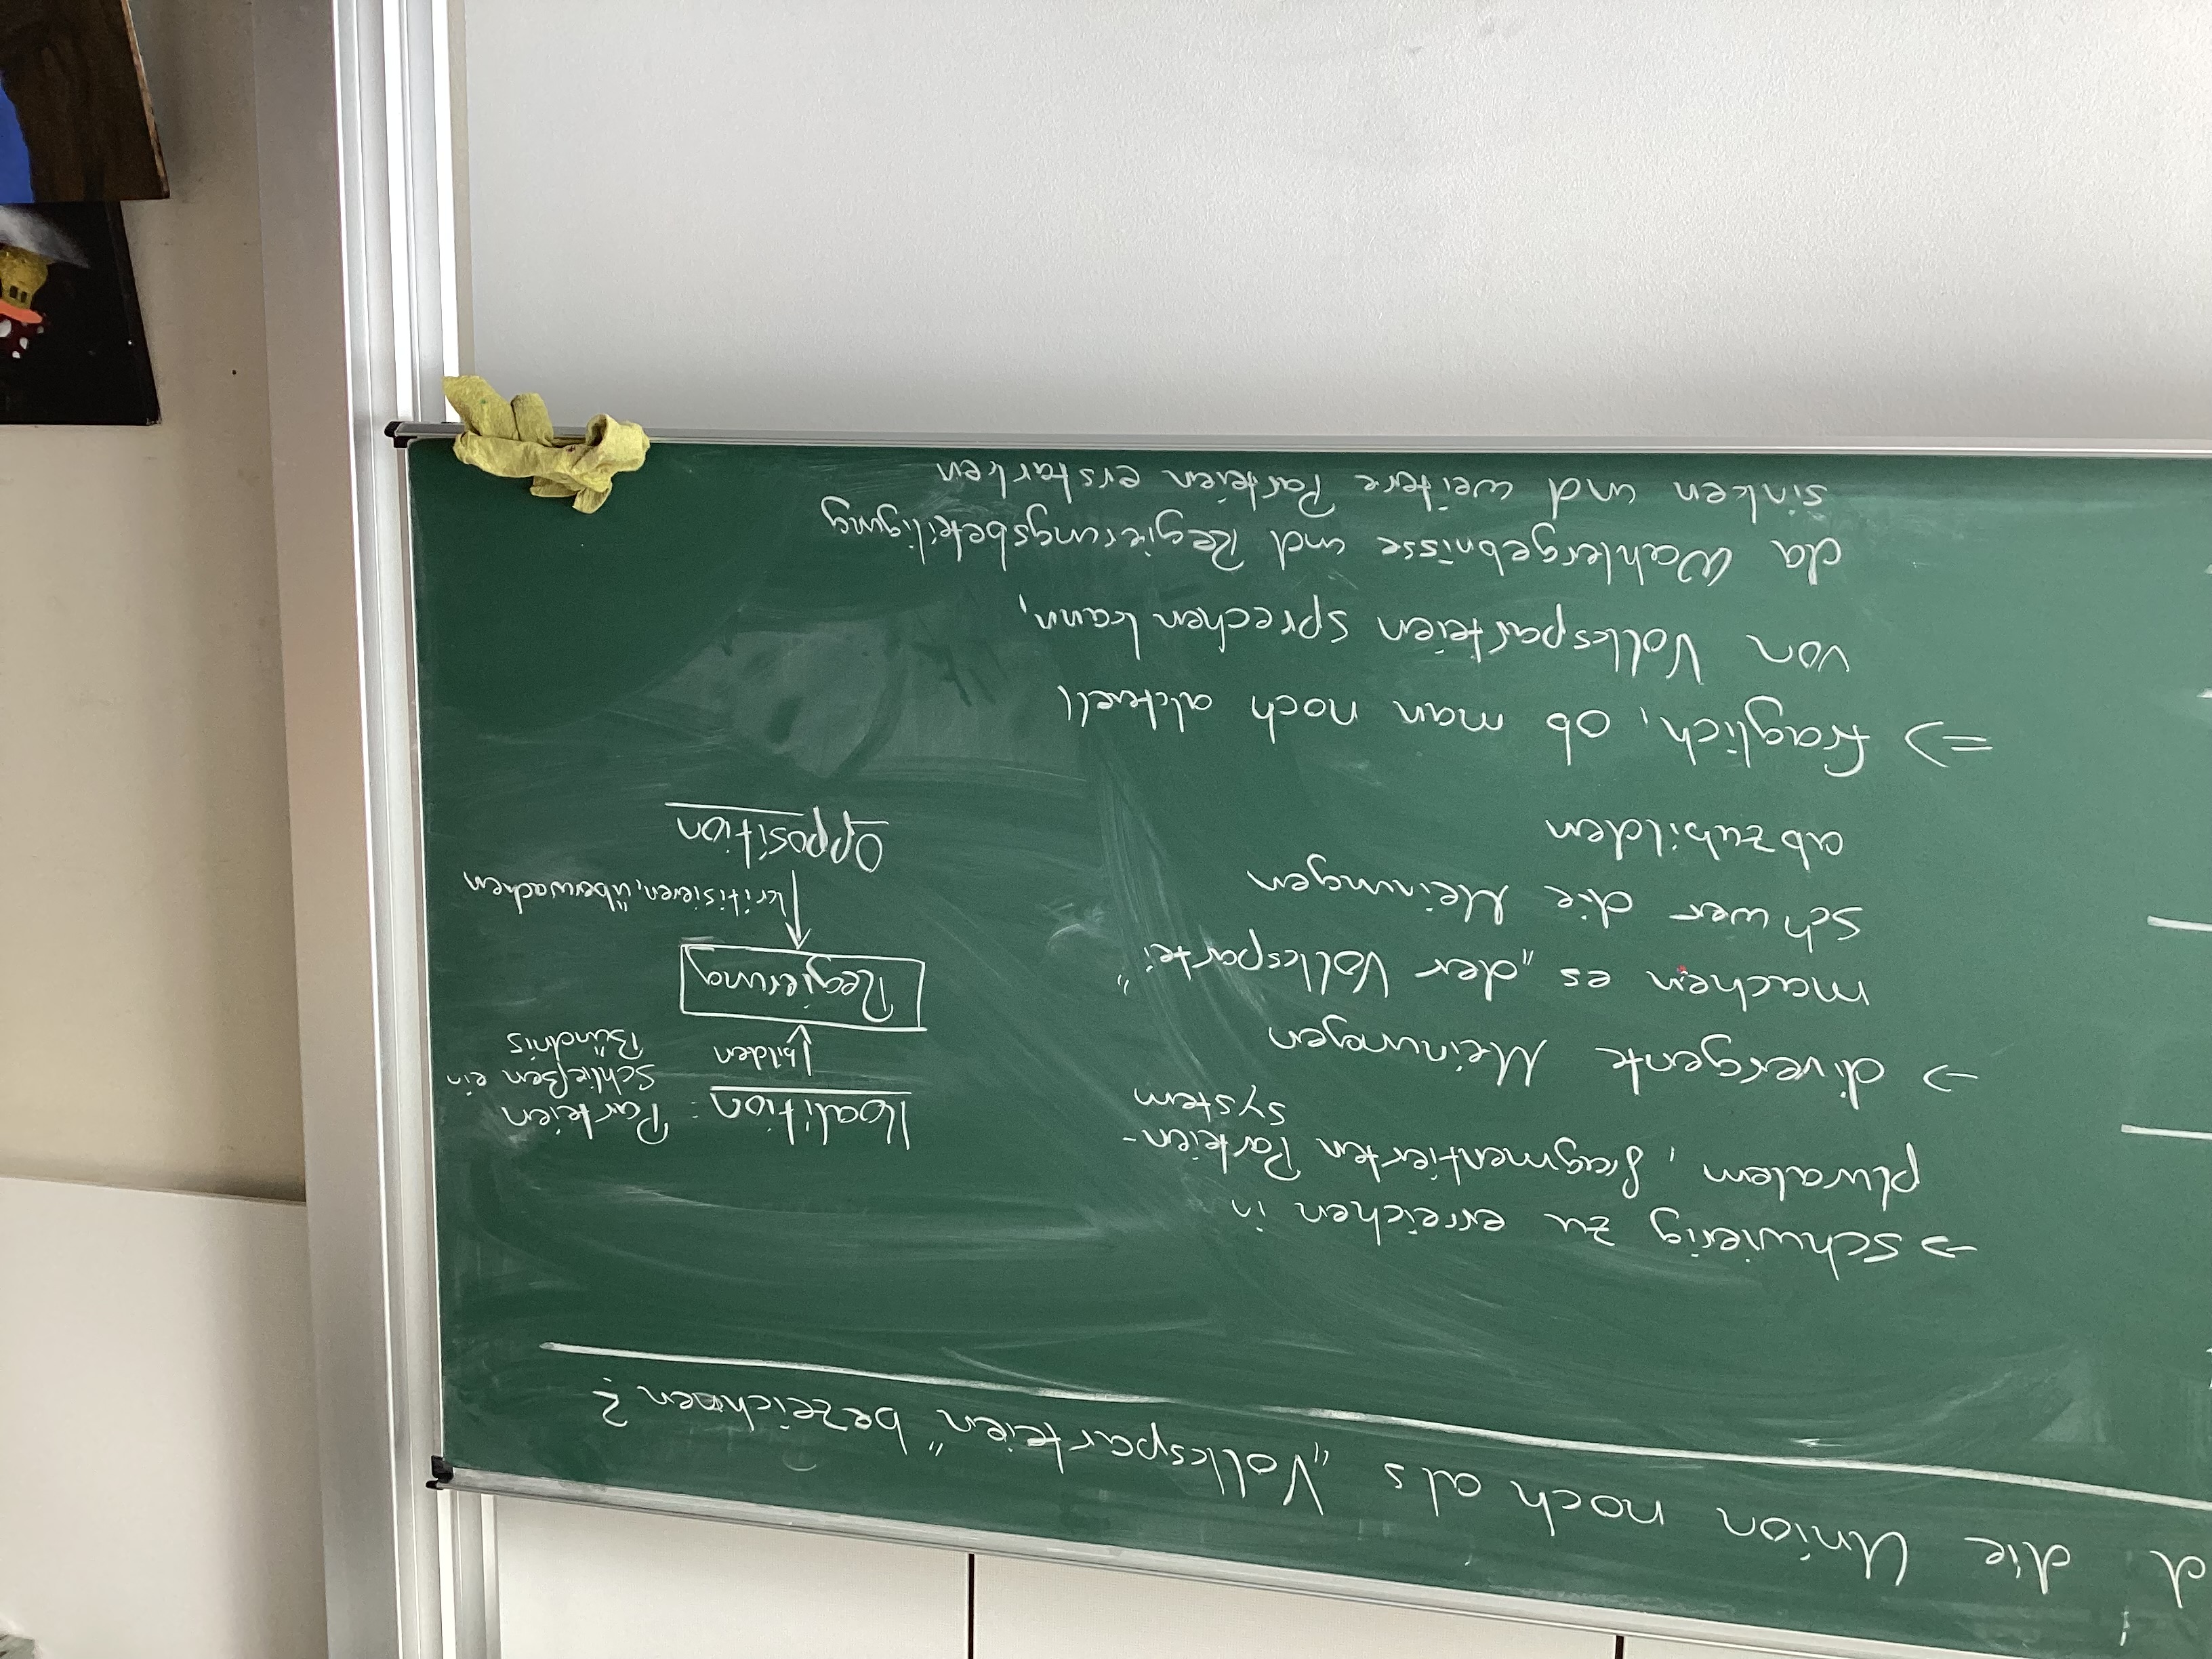 d die Union noch als „Volksparteien“ bezeichnen?
→ schwierig zu erreichen in
pluralem, fragmentierten Parteien-
system
→ divergente Meinungen
machen es „der Volkspartei“
schwer die Meinungen
abzubilden
⇒ fraglich, ob man noch aktuell
von Volksparteien sprechen kann,
da Wahlergebnisse und Regierungsbeteiligung
sinken und weitere Parteien erstarken
Koalition: Parteien
schließen ein
Bündnis
↓ bilden
Regierung
↑ kritisieren, überwachen
Opposition